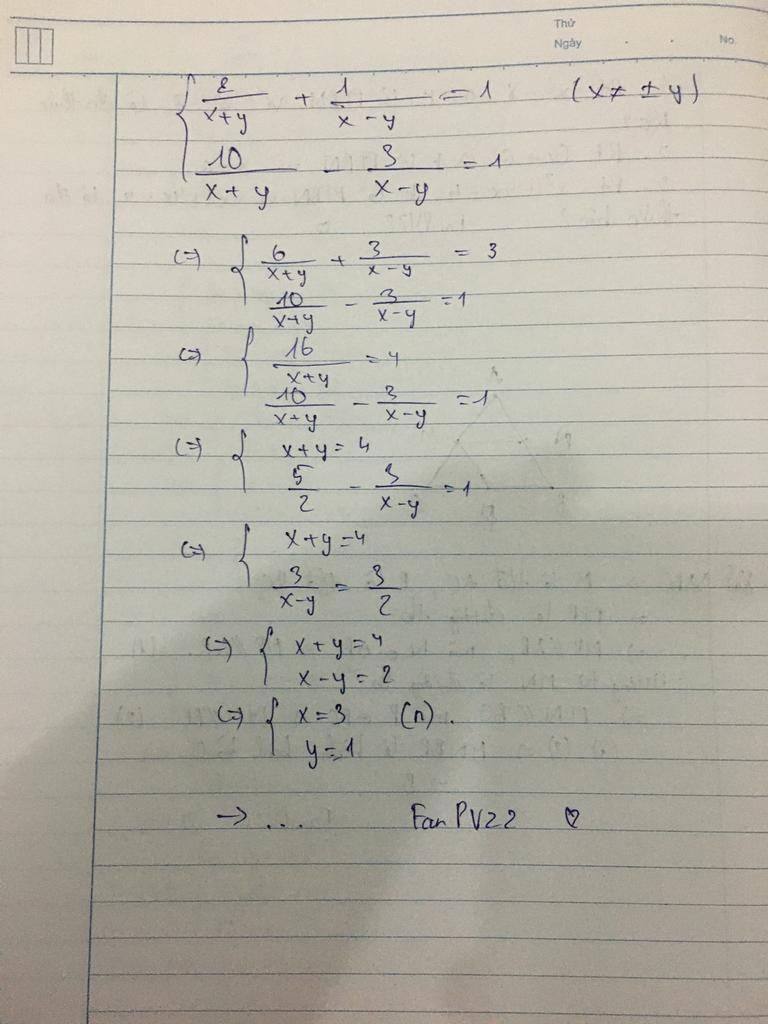 Thứ
Ngày . . No.
{ 2/(x+y) + 1/(x-y) = 1 (x ≠ ± y)
10/(x+y) - 3/(x-y) = 1
(=) { 6/(x+y) + 3/(x-y) = 3
10/(x+y) - 3/(x-y) = 1
(=) { 16/(x+y) = 4
10/(x+y) - 3/(x-y) = 1
(=) { x+y = 4
5/2 - 3/(x-y) = 1
(=) { x+y = 4
3/(x-y) = 3/2
(=) { x+y = 4
x-y = 2
(=) { x = 3 (n).
y = 1
→ ... Fan PV22 ♡